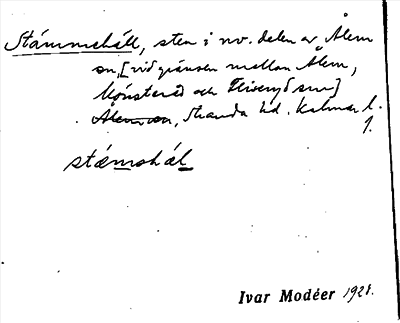 Stämmehäll, sten i nv. delen av Ålem
sn, [vid gränsen mellan Ålem,
Mönsterås och Fliseryd snr]
Ålem sn, Stranda hd. Kalmar l.
1.
stämshäl
Ivar Modéer 1928.